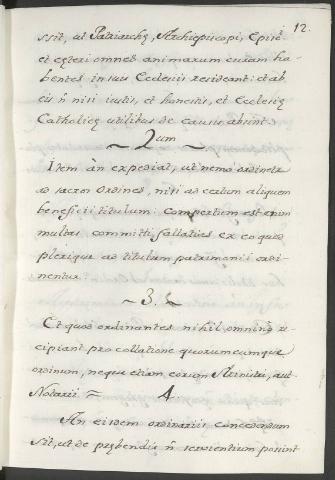 12.
ssit, ut Patriarchę, Archiepiscopi, Episc̄
et cęteri omnes animarum curam ha-
bentes in suis Ecclesiis resideant: et ab
eis n̄ nisi iustis, et honestis, et Ecclesię
Catholicę utilibus de causis absint.
~ 2um ~
Item an expediat, ut nemo ordinetur
ad sacros Ordines, nisi ad certum aliquem
beneficii titulum. Compertum est enim
multas committi fallaties ex eo quod
plerique ad titulum patrimonii ordi-
nentur.
~ 3. ~
Et quod ordinantes nihil omninò re-
cipiant pro collatione quorumcumque
ordinum, neque etiam eorum Ministri, aut
Notarii = 4.
An eisdem ordinariis concedendum
sit, ut de prębendis n̄ servientium possint